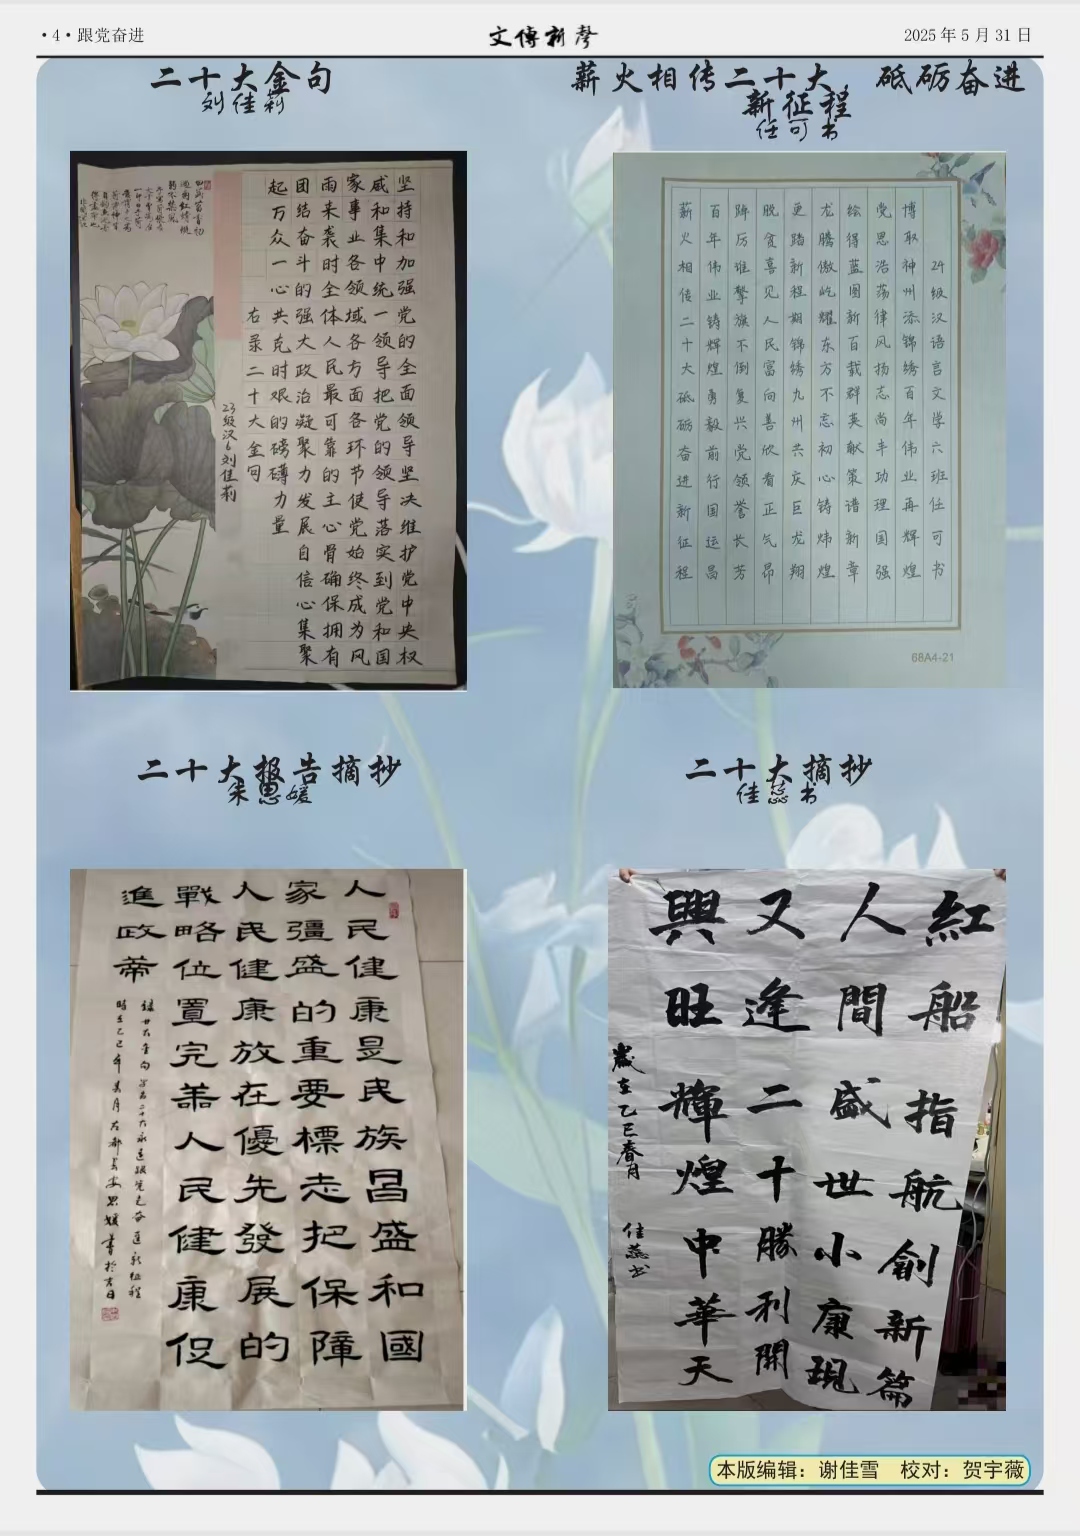 ·4·跟党奋进
文传新声
2025年5月31日
二十大金句
刘佳莉
坚持和加强党的全面领导坚决维护党中央权
威和集中统一领导把党的领导落实到党和国
家事业各领域各方面各环节使党始终成为风
雨来袭时全体人民最可靠的主心骨确保拥有
团结奋斗的强大政治凝聚力发展自信心集聚
起万众一心共克时艰的磅礴力量
右录二十大金句
23级汉6刘佳莉
薪火相传二十大，砥砺奋进
新征程
任可书
24级汉语言文学六班任可书
博取神州添锦绣百年伟业再辉煌
党思浩荡律风扬志尚丰功理国强
绘得蓝图新百载群英献策谱新章
龙腾傲屹耀东方不忘初心铸炜煌
更踏新程期锦绣九州共庆巨龙翔
脱贫喜见人民富向善欣看正气昂
踔厉谁擎旗不倒复兴党领誉长芳
百年伟业铸辉煌勇毅前行国运昌
薪火相传二十大砥砺奋进新征程
二十大报告摘抄
朱思媛
人民健康是民族昌盛和國
家强盛的重要標志把保障
人民健康放在優先發展的
戰略位置完善人民健康促
進政策
二十大摘抄
佳蕊书
紅船指航創新篇
人間盛世小康現
又逢二十勝利開
興旺輝煌中華天
歲在乙巳春月
佳蕊书
68A4-21
本版编辑：谢佳雪 校对：贺宇薇